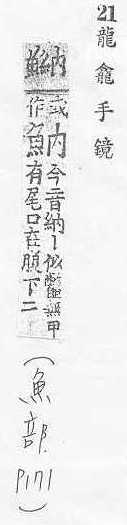 21 龍龕手鏡
或作魶今音納丨似鼈無甲
有尾口在腹下二
(魚部 P171)